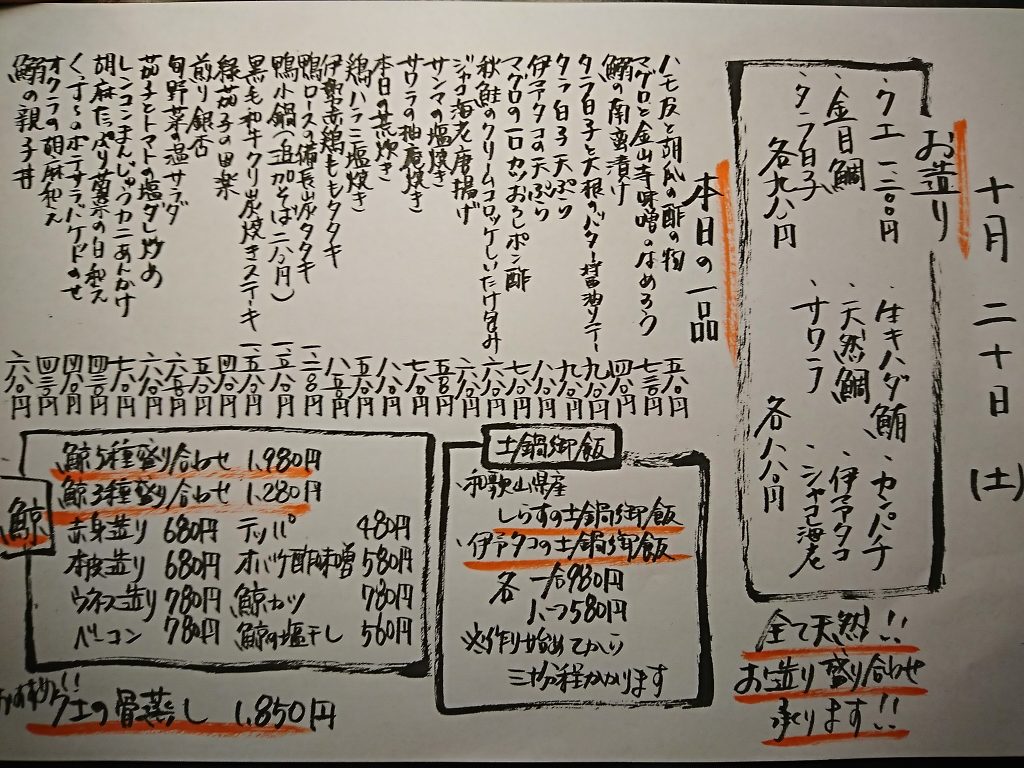 十月二十日(土)
お造り
・クエ 一、二〇〇円
・金目鯛
・タラ白子
各九八〇円
・生キハダ鮪
・天然鯛
・サワラ
・カンパチ
・伊予タコ
・ジャコ海老
各八八〇円
全て天然!!
お造り盛り合わせ
承ります!!
本日の一品
ハモ皮と胡瓜の酢の物 五八〇円
マグロと金山寺味噌のなめろう 七三〇円
鰯の南蛮漬け 四八〇円
タラ白子と大根のバター醤油ソテー 九八〇円
タラ白子天ぷら 九八〇円
伊予タコの天ぷら 八八〇円
マグロの一口カツおろしポン酢 七八〇円
秋鮭のクリームコロッケしいたけ包み 六八〇円
ジャコ海老唐揚げ 六八〇円
サンマの塩焼き 五五〇円
サワラの柚庵焼き 七八〇円
本日の煮炊き 八八〇円
鶏ハラミ塩焼き 五八〇円
伊勢赤鶏ももタタキ 八五〇円
鴨ロースの備長炭タタキ 一、二八〇円
鴨小鍋(追加そば二八〇円) 一、五八〇円
黒毛和牛クリ炭焼きステーキ 一、五八〇円
緑茄子の田楽 四八〇円
煎り銀杏 五八〇円
旬野菜の温サラダ 六五〇円
茄子とトマトの塩ダレ炒め 六八〇円
レンコンまんじゅうカニあんかけ 七八〇円
胡麻たっぷり菊菜の白和え 四三〇円
のポテサラバケットのせ 四八〇円
オクラの胡麻和え 四三〇円
鰯の親子丼 六八〇円
土鍋御飯
・和歌山県産
しらすの土鍋御飯
・伊予タコの土鍋御飯
各 一合980円
ハーフ580円
※作り始めてから
三十分程かかります
鯨
鯨5種盛り合わせ 1,980円
鯨3種盛り合わせ 1,280円
赤身造り 680円 テッパ 480円
本皮造り 680円 オバケ酢味噌 580円
ウネス造り 780円 鯨カツ 780円
ベーコン 780円 鯨の塩干し 560円
おすすめ!!
クエの骨蒸し 1,850円